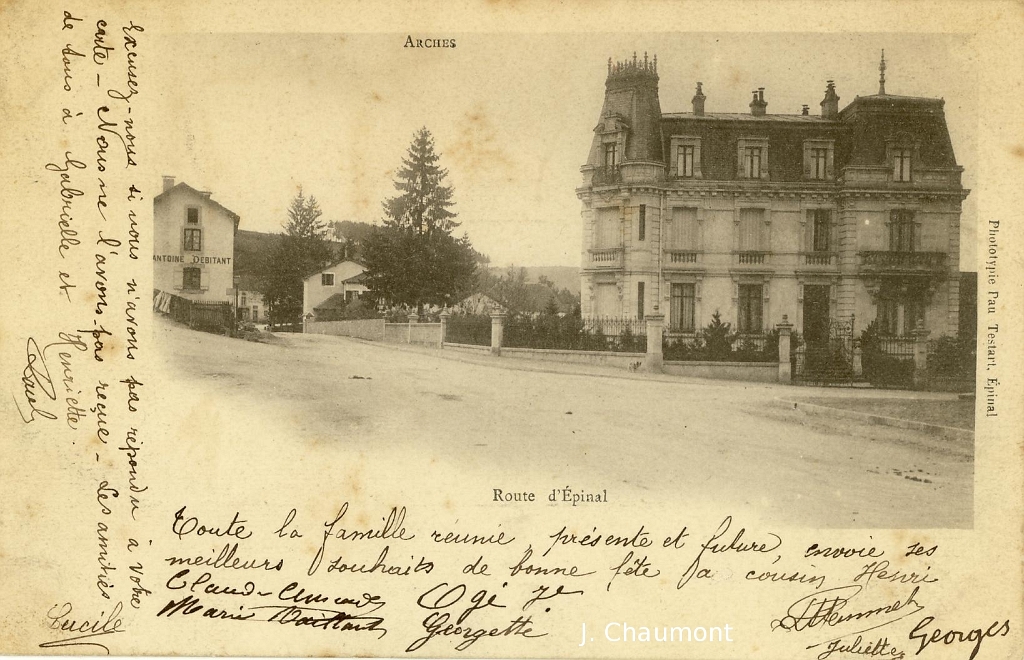 ARCHES
ANTOINE DEBITANT
Route d'Épinal
Phototypie Pau Testart, Épinal
Excusez-nous si nous n'avons pas répondu à votre
carte - Nous ne l'avons pas reçue - Les amitiés
de tous à Gabrielle et Henriette.
Paul
Lucile
Toute la famille réunie, présente et future, envoie ses
meilleurs souhaits de bonne fête à cousin Henri
Marie
Georgette
Juliette
Georges
J. Chaumont